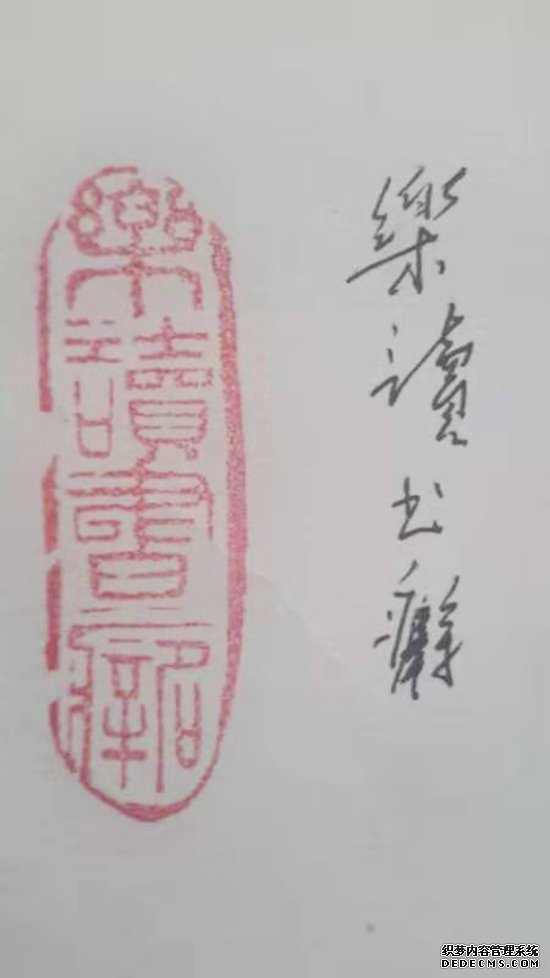 樂讀书癖
樂讀書癖
织梦内容管理系统
DEDECMS.COM